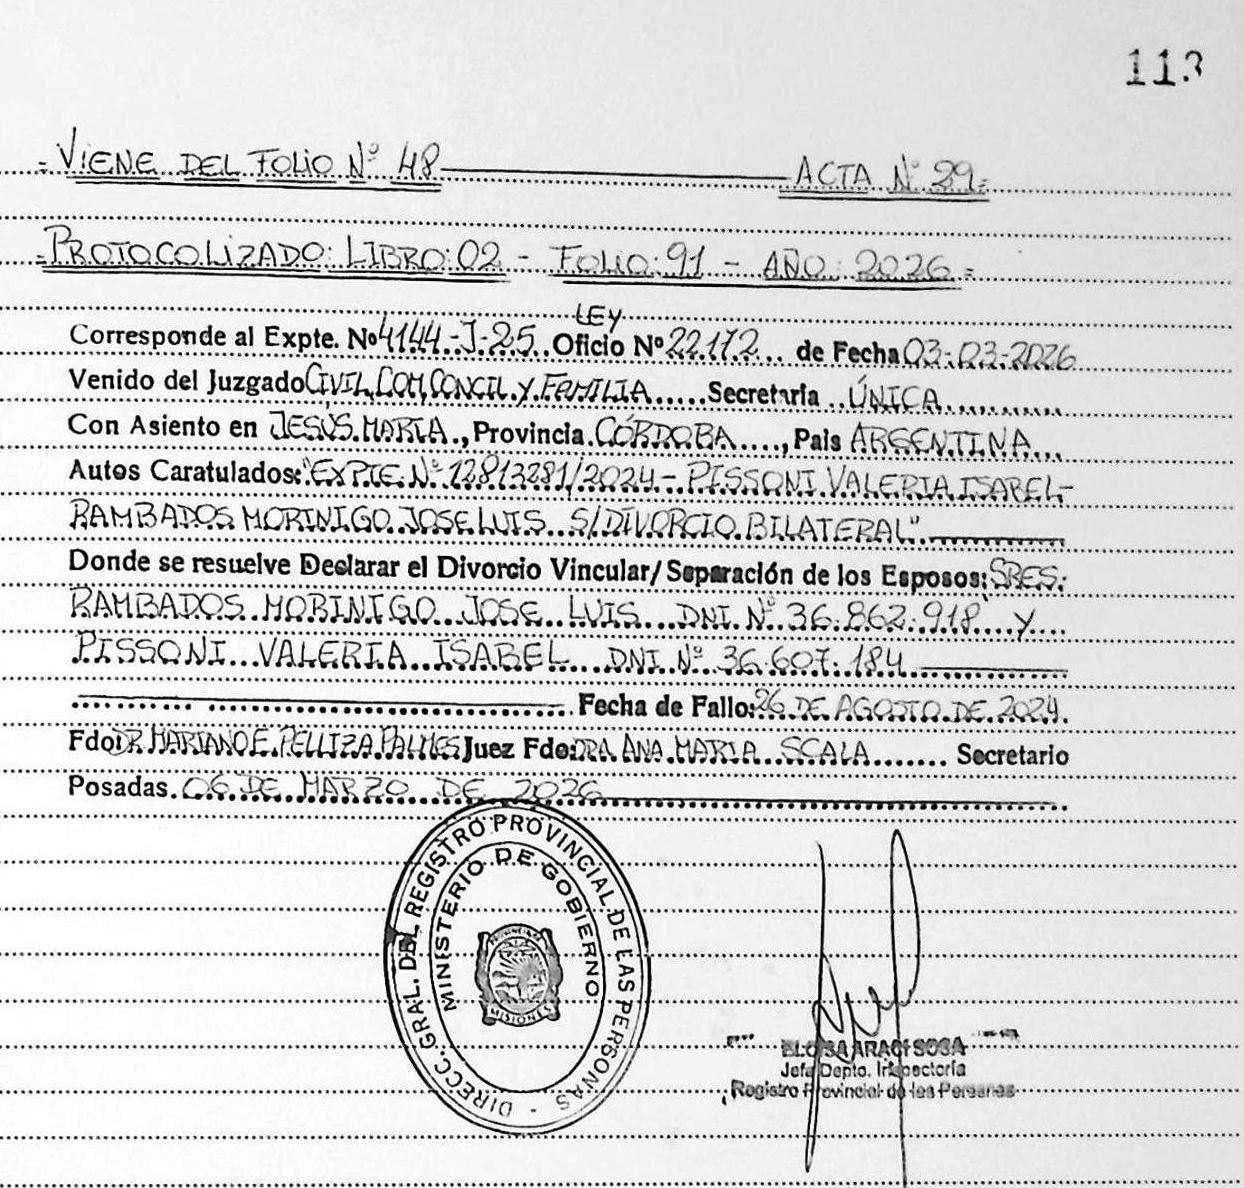 113
=VIENE DEL FOLIO Nº 48 ACTA Nº 29=
=PROTOCOLIZADO: LIBRO: 02 - FOLIO: 91 - AÑO: 2026=
LEY
Corresponde al Expte. Nº 4144-J-25 Oficio Nº 22.172 de Fecha 03-03-2026
Venido del Juzgado CIVIL, COM, CONCIL. Y FAMILIA Secretaría ÚNICA
Con Asiento en JESÚS MARÍA, Provincia CÓRDOBA, País ARGENTINA
Autos Caratulados: "EXPTE. Nº 12813281/2024 - PISSONI VALERIA ISABEL-
RAMBADOS MORINIGO JOSE LUIS S/DIVORCIO BILATERAL"
Donde se resuelve Declarar el Divorcio Vincular/Separación de los Esposos: SRES.
RAMBADOS MORINIGO JOSE LUIS DNI Nº 36.862.918 Y
PISSONI VALERIA ISABEL DNI Nº 36.607.184
Fecha de Fallo: 26 DE AGOSTO DE 2024.
Fdo: DR MARIANO E. PELLIZA PALMES Juez Fdo: DRA. ANA MARIA SCALA Secretario
Posadas. 06 DE MARZO DE 2026
DIRECC. GRAL. DEL REGISTRO PROVINCIAL DE LAS PERSONAS -
MINISTERIO DE GOBIERNO
MISIONES
ELOISA ARACI SOSA
Jefa Depto. Inspectoría
Registro Provincial de las Personas